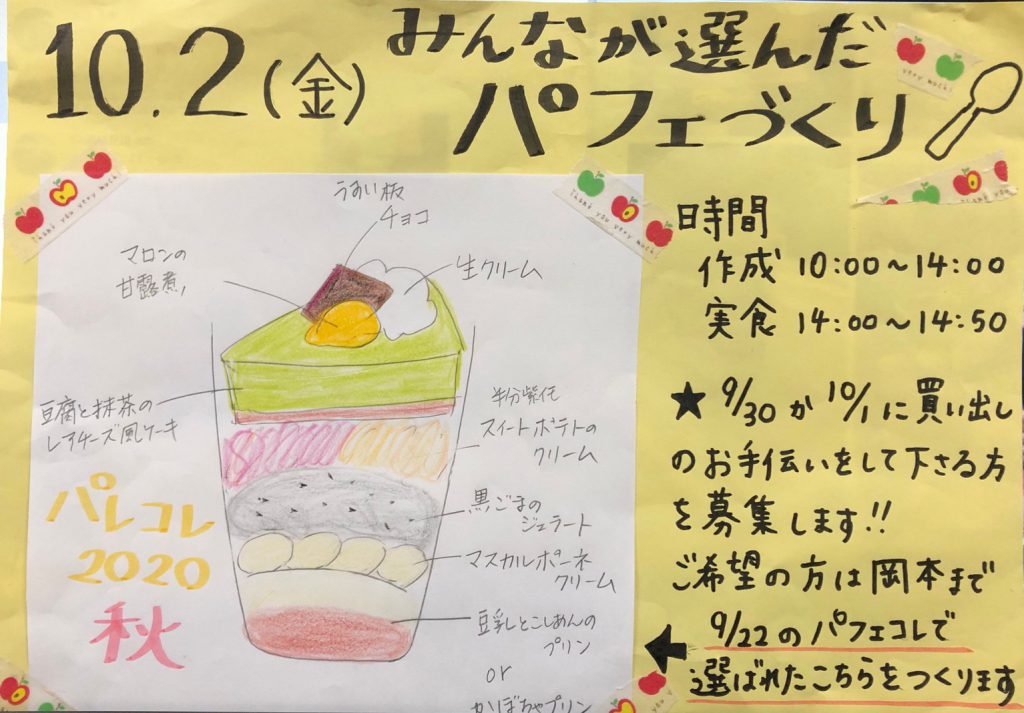 10.2(金)
みんなが選んだ
パフェづくり
うすい板
チョコ
マロンの
甘露煮
生クリーム
豆腐と抹茶の
レアチーズ風ケーキ
半分紫任
スイートポテトの
クリーム
黒ごまの
ジェラート
マスカルポーネ
クリーム
豆乳とこしあんの
プリン
or
かぼちゃプリン
パレコレ
2020
秋
時間
作成 10:00〜14:00
実食 14:00〜14:50
★ 9/30か10/1に買い出し
のお手伝いをして下さる方
を募集します!!
ご希望の方は岡本まで
9/22のパフェコレで
選ばれたこちらをつくります
Thank you very much!
Thank you very much!
very much!